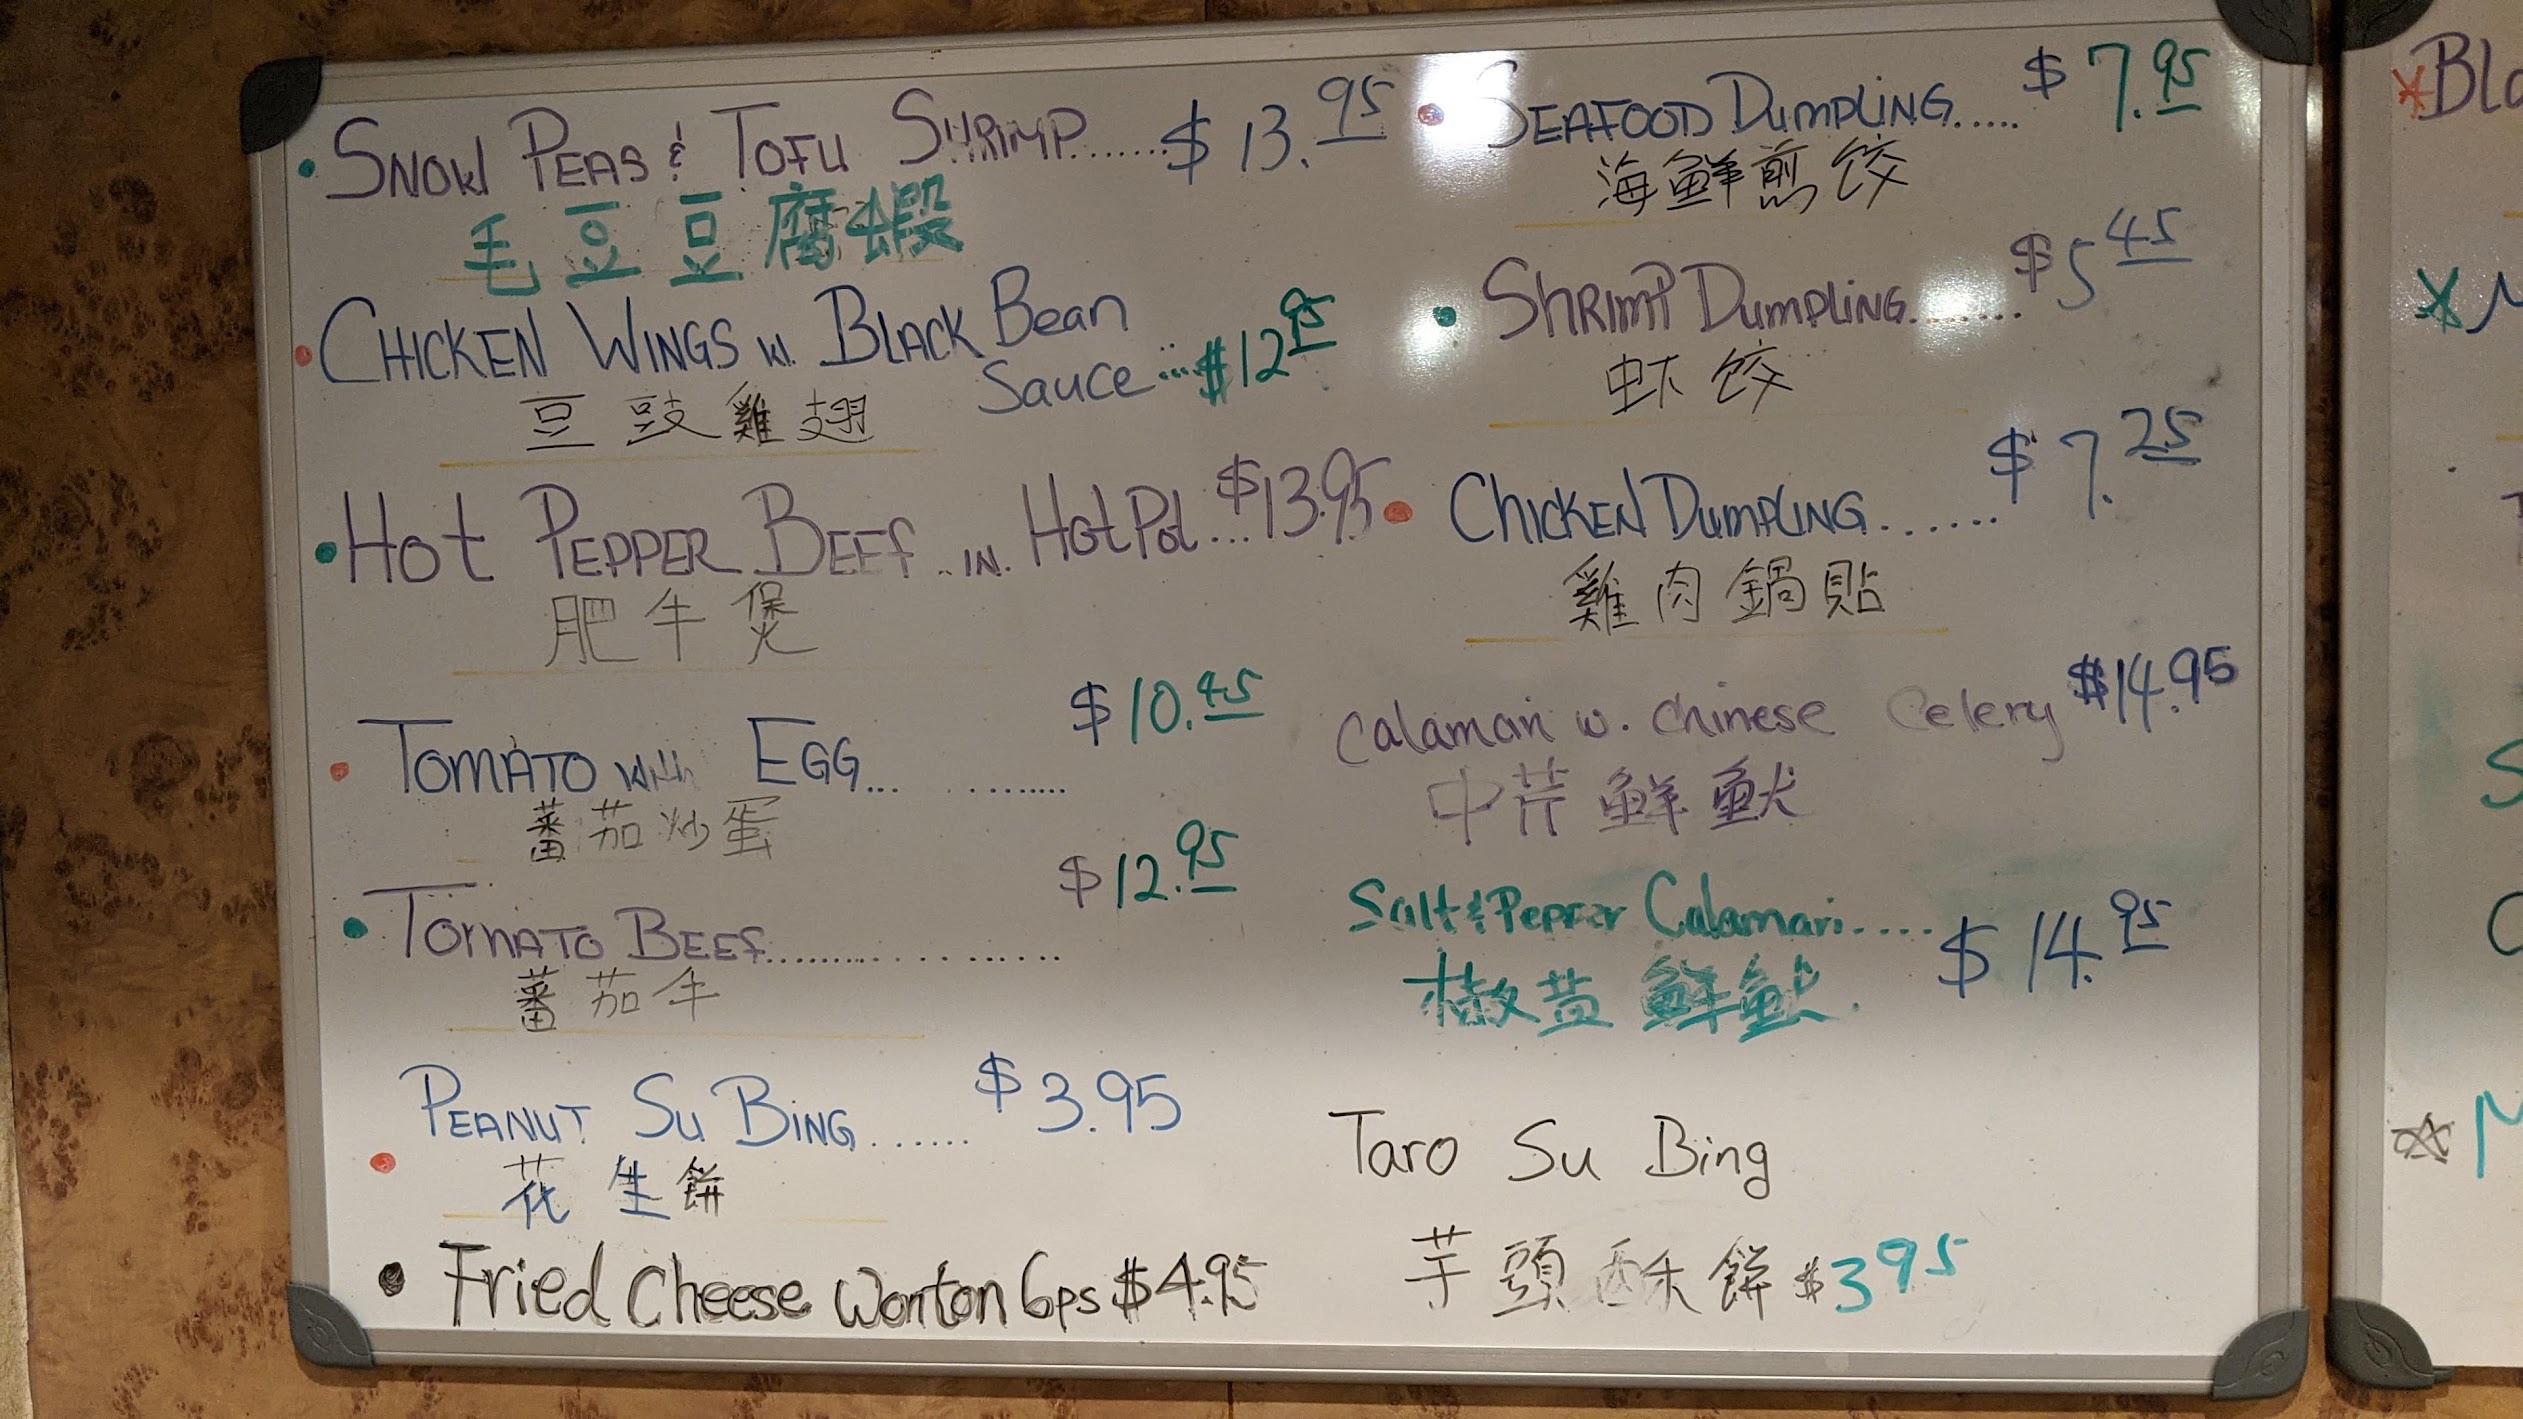 SNOW PEAS & TOFU SHRIMP......$13.95
毛豆豆腐蝦
CHICKEN WINGS W. BLACK Bean
Sauce...$12.95
豆豉雞翅
Hot PEPPER BEEf..IN. Hot Pot...$13.95
肥牛煲
TOMATO with EGG... ......$10.45
蕃茄炒蛋
TOMATO BEEf...................$12.95
蕃茄牛
PEANUT SU BING.......$3.95
花生餅
Fried Cheese Wonton 6ps $4.95
SEAFOOD DUMPLING.....$7.95
海鮮煎饺
SHRIMP DUMPLING.......$5.45
虾饺
CHICKEN DUMPLING.......$7.25
雞肉鍋貼
Calamari w. Chinese Celery $14.95
中芹鮮魷
Salt & Pepper Calamari.....$14.95
椒盐鮮魷
Taro Su Bing
芋頭酥餅 $3.95
Bl